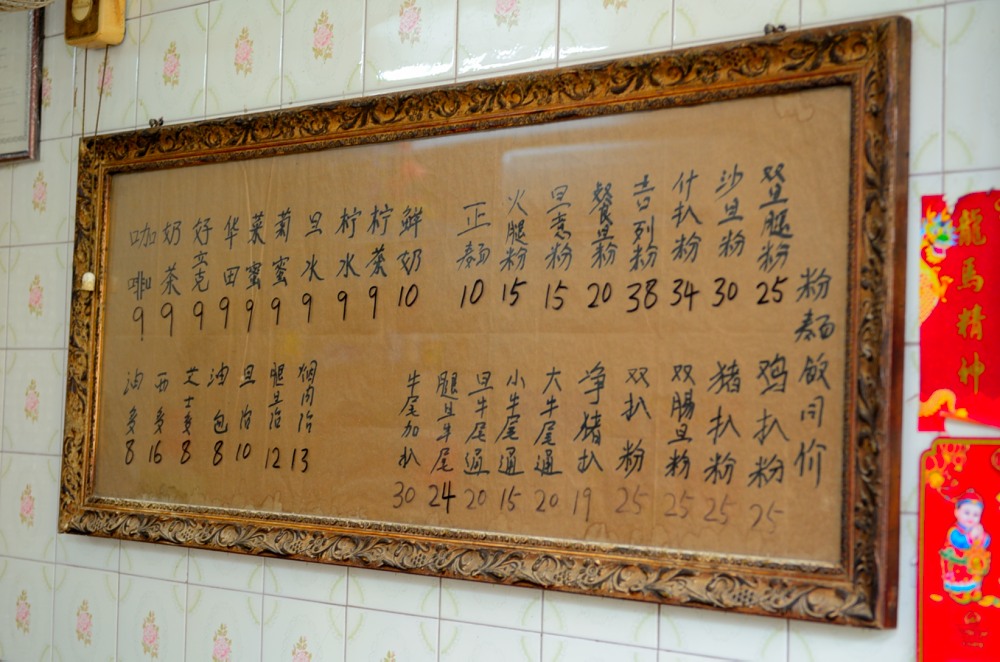 粉麵飯同价
双旦腿粉 25
沙旦粉 30
什扒粉 34
吉列粉 38
餐旦粉 20
旦意粉 15
火腿粉 15
正麵 10
鲜奶 10
柠茶 9
柠水 9
旦水 9
菊蜜 9
菜蜜 9
华田 9
好立克 9
奶茶 9
咖啡 9
鸡扒粉 25
猪扒粉 25
双肠旦粉 25
双扒粉 25
净猪扒 19
大牛尾通 20
小牛尾通 15
旦牛尾通 20
腿旦牛尾 24
牛尾加扒 30
治 13
腿旦治 12
旦治 10
油包 8
士多 8
西多 16
油多 8
龍馬精神